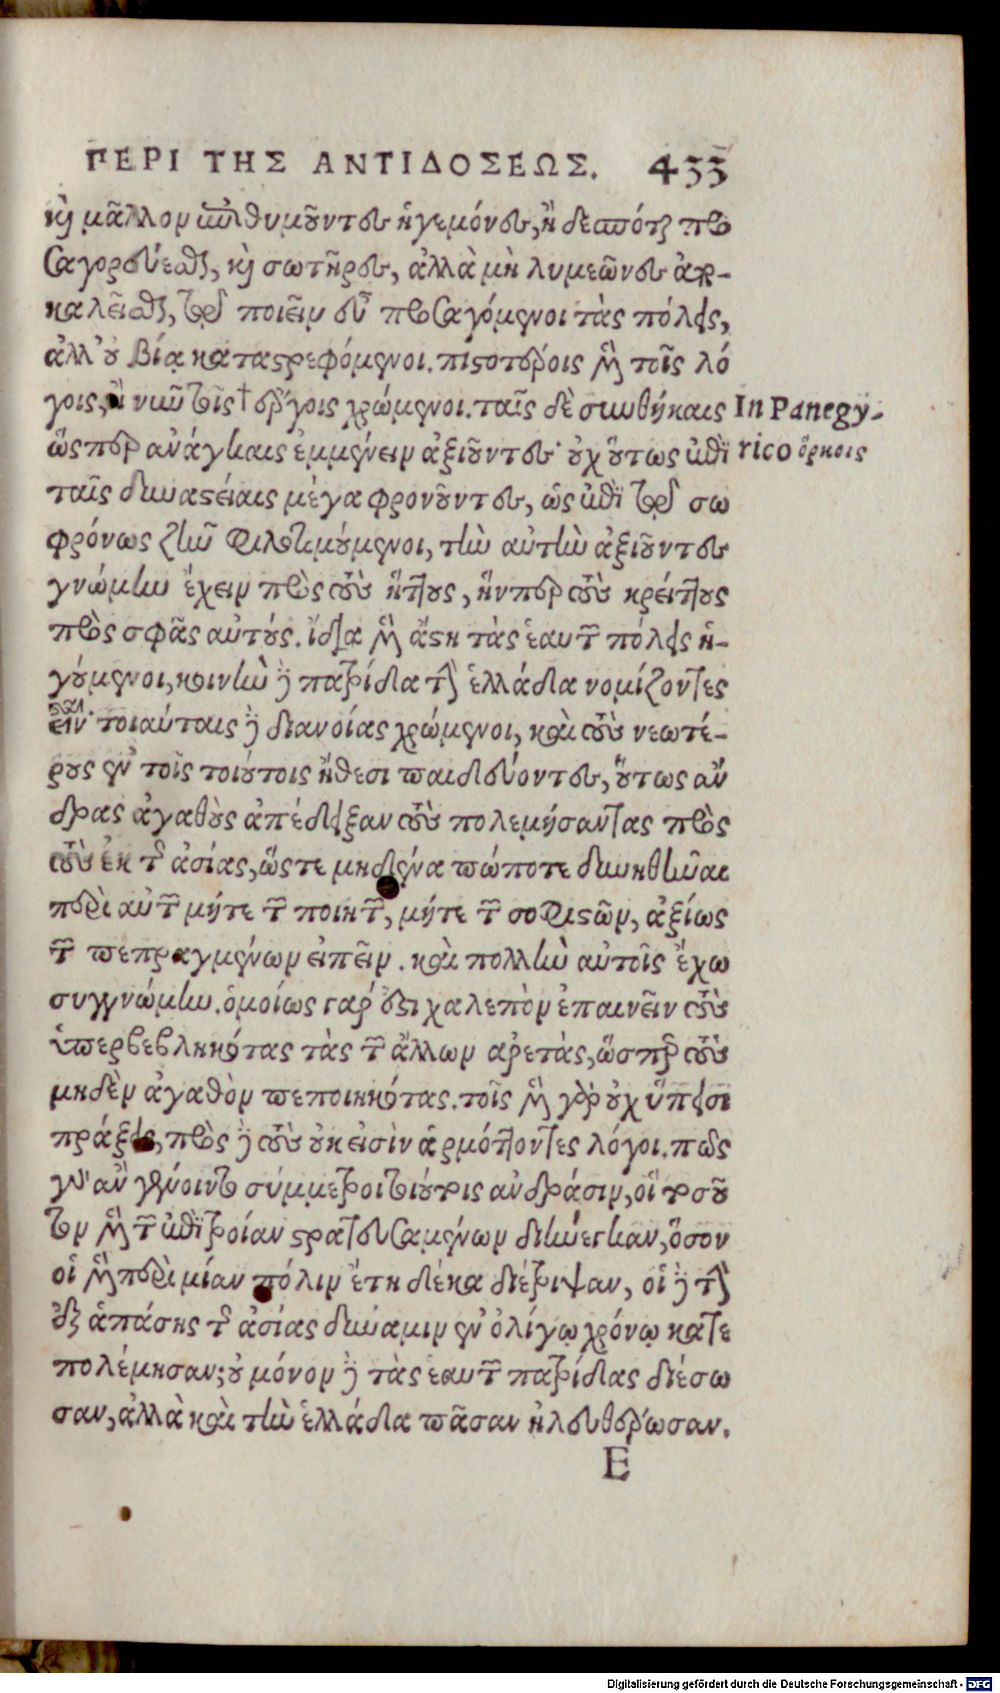 ΠΕΡΙ ΤΗΣ ΑΝΤΙΔΟΣΕΩΣ. 433
καὶ μᾶλλον ἐπιθυμοῦντες ἡγεμόνες, ἢ δεσπόται προ
σαγορεύεσθαι, καὶ σωτῆρες, ἀλλὰ μὴ λυμεῶνες ἀπο-
καλεῖσθαι, τῷ ποιεῖν εὖ προσαγόμενοι τὰς πόλεις,
ἀλλ' οὐ βίᾳ καταστρεφόμενοι. πιστοτέροις μὲν τοῖς λό
γοις, ἢ νῦν τοῖς † ἔργοις χρώμενοι. ταῖς δὲ συνθήκαις
In Panegy-
ὥσπερ ἀνάγκαις ἐμμένειν ἀξιοῦντες· οὐχ οὕτως ἐπὶ
rico ὅρκοις
ταῖς δυναστείαις μέγα φρονοῦντες, ὡς ἐπὶ τῷ σω
φρόνως ζῆν φιλοτιμούμενοι, τὴν αὐτὴν ἀξιοῦντες
γνώμην ἔχειν πρὸς τοὺς ἥττους, ἥνπερ τοὺς κρείττους
πρὸς σφᾶς αὐτούς. ἴδια μὲν ἄστη τὰς ἑαυτῶν πόλεις ἡ-
γούμενοι, κοινὴν δὲ πατρίδα τὴν ἑλλάδα νομίζοντες
εἶναι. τοιαύταις δὲ διανοίαις χρώμενοι, καὶ τοὺς νεωτέ-
ρους ἐν τοῖς τοιούτοις ἤθεσι παιδεύοντες, οὕτως ἄν
δρας ἀγαθοὺς ἀπέδειξαν τοὺς πολεμήσαντας πρὸς
τοὺς ἐκ τῆς ἀσίας, ὥστε μηδένα πώποτε δυνηθῆναι
περὶ αὐτῶν μήτε τῶν ποιητῶν, μήτε τῶν σοφιστῶν, ἀξίως
τῶν πεπραγμένων εἰπεῖν. καὶ πολλὴν αὐτοῖς ἔχω
συγγνώμην. ὁμοίως γάρ ἐστι χαλεπὸν ἐπαινεῖν τοὺς
ὑπερβεβληκότας τὰς τῶν ἄλλων ἀρετὰς, ὥσπερ τοὺς
μηδὲν ἀγαθὸν πεποιηκότας. τοῖς μὲν γὰρ οὐχ ὕπεισι
πράξεις, πρὸς δὲ τοὺς οὐκ εἰσὶν ἁρμόττοντες λόγοι. πῶς
γὰρ ἂν γένοιντο σύμμετροι τοιούτοις ἀνδράσιν, οἳ τοσοῦ
τον μὲν τῶν ἐπὶ τροίαν στρατευσαμένων διήνεγκαν, ὅσον
οἱ μὲν περὶ μίαν πόλιν ἔτη δέκα διέτριψαν, οἱ δὲ τὴν
ἐξ ἁπάσης τῆς ἀσίας δύναμιν ἐν ὀλίγῳ χρόνῳ κατε
πολέμησαν; οὐ μόνον δὲ τὰς ἑαυτῶν πατρίδας διέσω
σαν, ἀλλὰ καὶ τὴν ἑλλάδα πᾶσαν ἠλευθέρωσαν.
E
Digitalisierung gefördert durch die Deutsche Forschungsgemeinschaft - DFG